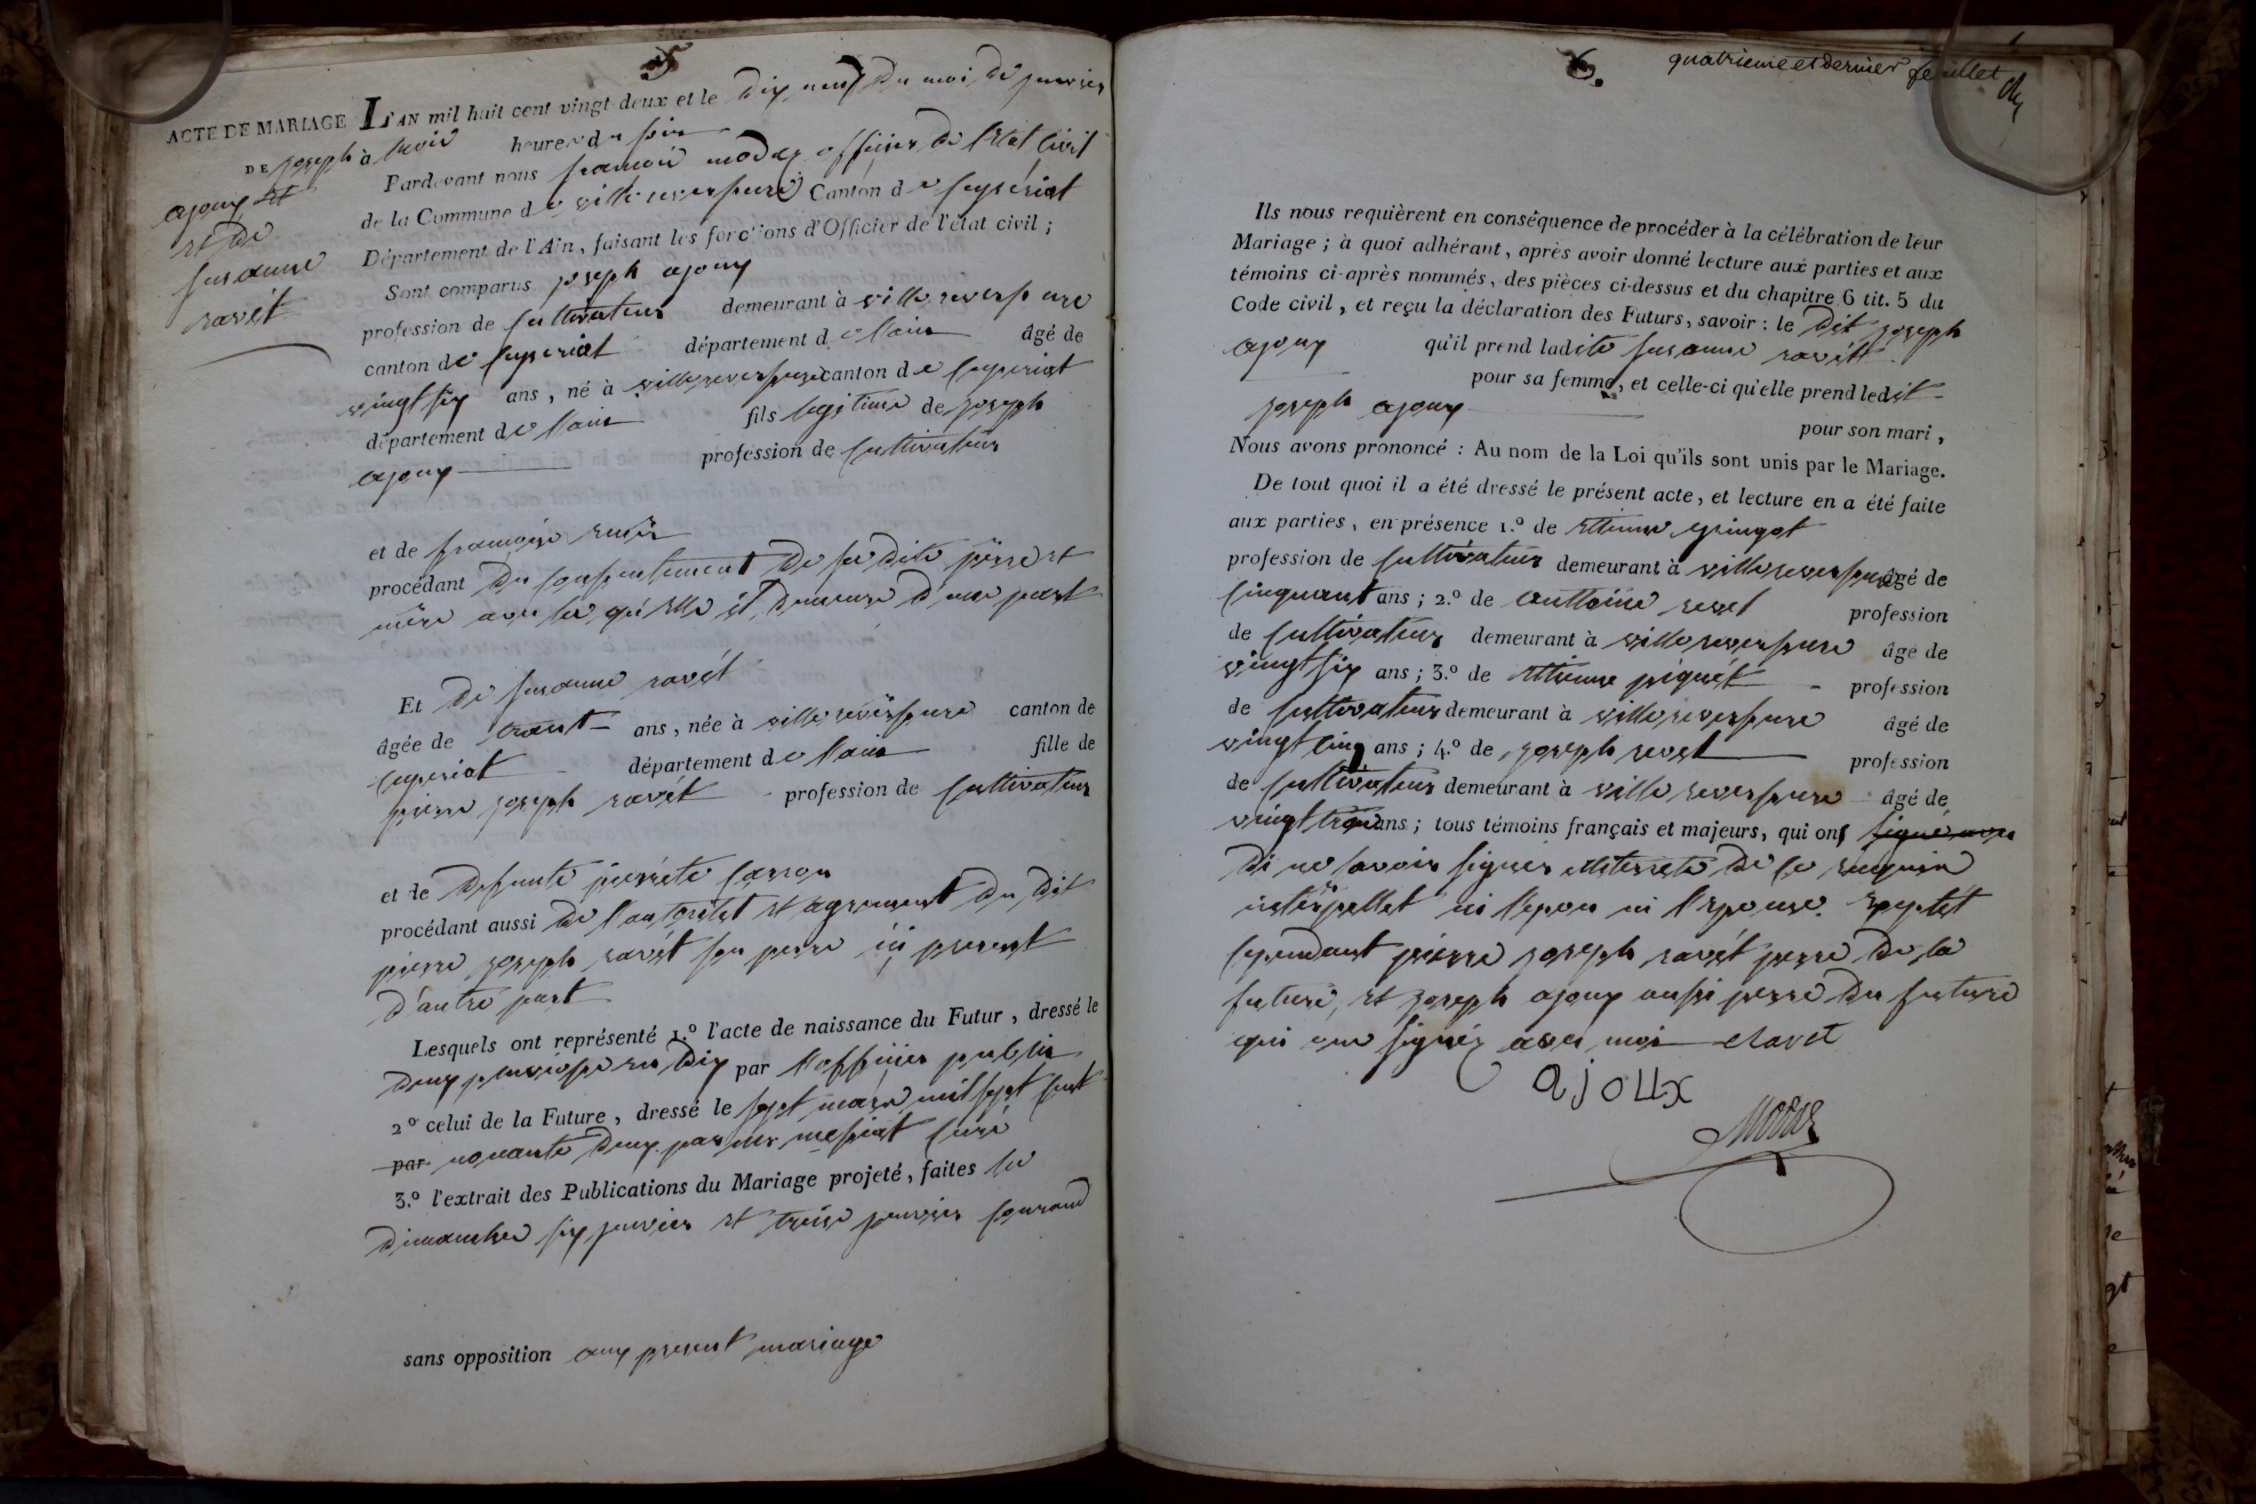 5
ACTE DE MARIAGE L'AN mil huit cent vingt-deux et le dix neuf du moi de janvier
DE joseph à trois heures du soir
ajoux et
et de
susanne
ravét
Pardevant nous françois modas officier de l'état civil
de la Commune de villereversure Canton de ceyseriat
Département de l'Ain, faisant les fonctions d'Officier de l'état civil ;
Sont comparus joseph ajoux
profession de cultivateur demeurant à villereversure
canton de ceyseriat département de l'ain âgé de
vingt six ans, né à villereversure canton de ceyseriat
département de l'ain fils legitime de joseph
ajoux profession de cultivateur
et de françoise
procédant du consentement de se dits perre et
mère avec les qu'elle il demeure d'une part
Et de susanne ravét
âgée de trent ans, née à villereversure canton de
ceyseriat département de l'ain fille de
pierre joseph ravét profession de cultivateur
et de defunte pierrete carron
procédant aussi de l'autoritet et agrement du dit
pierre joseph ravét son perre ici present
d'autre part
Lesquels ont représenté 1.º l'acte de naissance du Futur, dressé le
deux pluviose en dix par l'officier public
2º celui de la Future, dressé le sept mars mil sept cent
par nonante deux par mr mesiat curé
3.º l'extrait des Publications du Mariage projeté, faites les
dimanches six janvier et treise janvier courand
sans opposition aux present mariage
6.
quatrieme et dernier feuillet
Ils nous requièrent en conséquence de procéder à la célébration de leur
Mariage ; à quoi adhérant, après avoir donné lecture aux parties et aux
témoins ci-après nommés, des pièces ci-dessus et du chapitre 6 tit. 5 du
Code civil, et reçu la déclaration des Futurs, savoir : le dit joseph
ajoux qu'il prend ladite susanne ravétt
pour sa femme, et celle-ci qu'elle prend ledit
joseph ajoux pour son mari,
Nous avons prononcé : Au nom de la Loi qu'ils sont unis par le Mariage.
De tout quoi il a été dressé le présent acte, et lecture en a été faite
aux parties, en présence 1.º de ettienne gringot
profession de cultivateur demeurant à villereversure âgé de
cinquant ans ; 2.º de anttoine revet profession
de cultivateur demeurant à villereversure âgé de
vingt six ans ; 3.º de ettienne piquét profession
de cultivateur demeurant à villereversure âgé de
vingt cinq ans ; 4.º de joseph revet profession
de cultivateur demeurant à villereversure âgé de
vingt trois ans ; tous témoins français et majeurs, qui ont signé avec
di ne savoir signer de ce requir
interpellet ni l'epou ni l'epouse. exeptét
cependant pierre joseph ravét perre de la
future, et joseph ajoux aussi perre du future
qui on signéz avec moi Ravet
ajoux
Modas